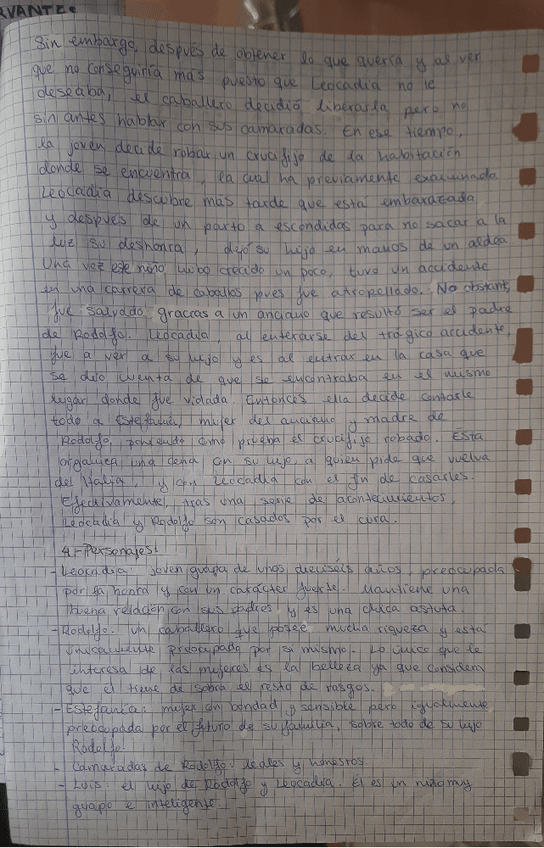 RVANTES
Sin embargo, después de obtener lo que quería y al ver
que no conseguiría más puesto que Leocadia no le
deseaba, el caballero decidió liberarla pero no
sin antes hablar con sus camaradas. En ese tiempo,
la joven decide robar un crucifijo de la habitación
donde se encuentra, la cual ha previamente examinado
Leocadia descubre más tarde que está embarazada
y después de un parto a escondidas para no sacar a la
luz su deshonra, dejó su hijo en manos de un aldea
Una vez este niño hubo crecido un poco, tuvo un accidente
en una carrera de caballos pues fue atropellado. No obstante,
fue salvado gracias a un anciano que resultó ser el padre
de Rodolfo. Leocadia, al enterarse del trágico accidente,
fue a ver a su hijo y es al entrar en la casa que
se dio cuenta de que se encontraba en el mismo
lugar donde fue violada. Entonces ella decide contarle
todo a Estefanía, mujer del anciano y madre de
Rodolfo, poniendo como prueba el crucifijo robado. Esta
organiza una cena con su hijo, a quien pide que vuelva
de Italia, y con Leocadia con el fin de casarles.
Efectivamente, tras una serie de acontecimientos,
Leocadia y Rodolfo son casados por el cura.
4.- Personajes:
- Leocadia: joven guapa de unos dieciséis años, preocupada
por la honra y con un carácter fuerte. Mantiene una
buena relación con sus padres y es una chica astuta.
- Rodolfo: un caballero que posee mucha riqueza y está
únicamente preocupado por si mismo. Lo único que le
interesa de las mujeres es la belleza ya que considera
que el tiene de sobra el resto de rasgos.
- Estefanía: mujer con bondad y sensible pero igualmente
preocupada por el futuro de su familia, sobre todo de su hijo
Rodolfo.
- Camaradas de Rodolfo: leales y honestos
- Luis: el hijo de Rodolfo y Leocadia. Él es un niño muy
guapo e inteligente.